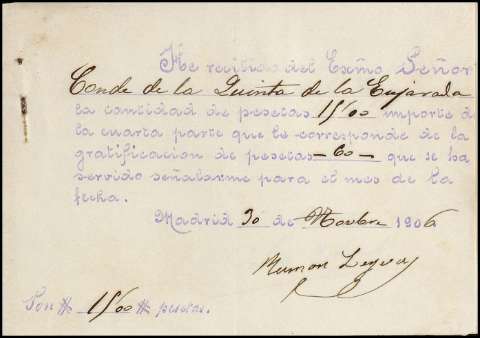 He recibido del Exmo Señor
Conde de la Quinta de la Enjarada
la cantidad de pesetas 15'00 importe de
la cuarta parte que le corresponde de la
gratificacion de pesetas — 60 — que se ha
servido señalarme para el mes de la
fecha.
Madrid 30 de Novbre 1906
Ramon Leyva
Son # 15'00 # pesetas.